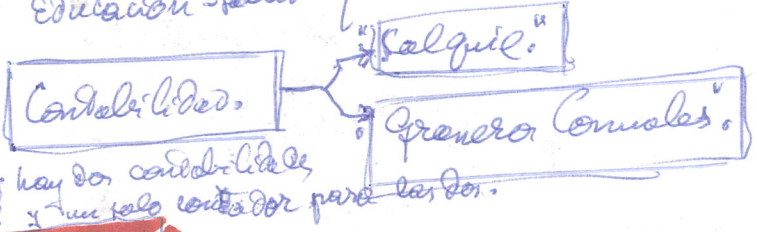 Educación
"Salquil."
Contabilidad.
"Graneros Comunales".
hay dos contabilidades
y un solo contador para las dos.